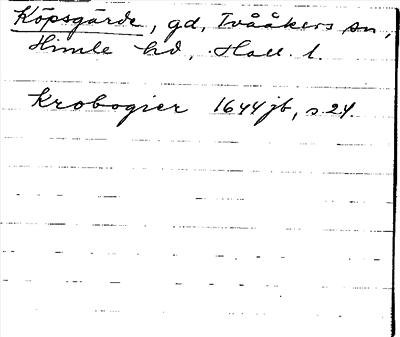 Köpsgärde, gd, Tvååkers sn,
Himle hd, Hall. l.
Krobogier 1644 jb, s 24.